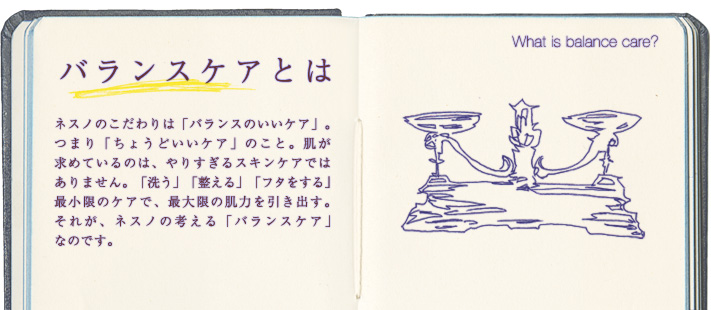 バランスケアとは
ネスノのこだわりは「バランスのいいケア」。
つまり「ちょうどいいケア」のこと。肌が
求めているのは、やりすぎるスキンケアでは
ありません。「洗う」「整える」「フタをする」
最小限のケアで、最大限の肌力を引き出す。
それが、ネスノの考える「バランスケア」
なのです。
What is balance care?